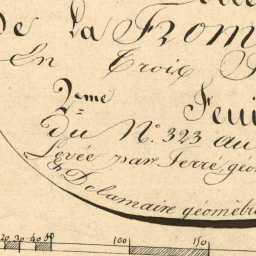 de la From
En Trois
2eme Feui
du N° 323 au
Levée par Serré, géo
F Delamaire géomètre
20 30 40 50 100 150